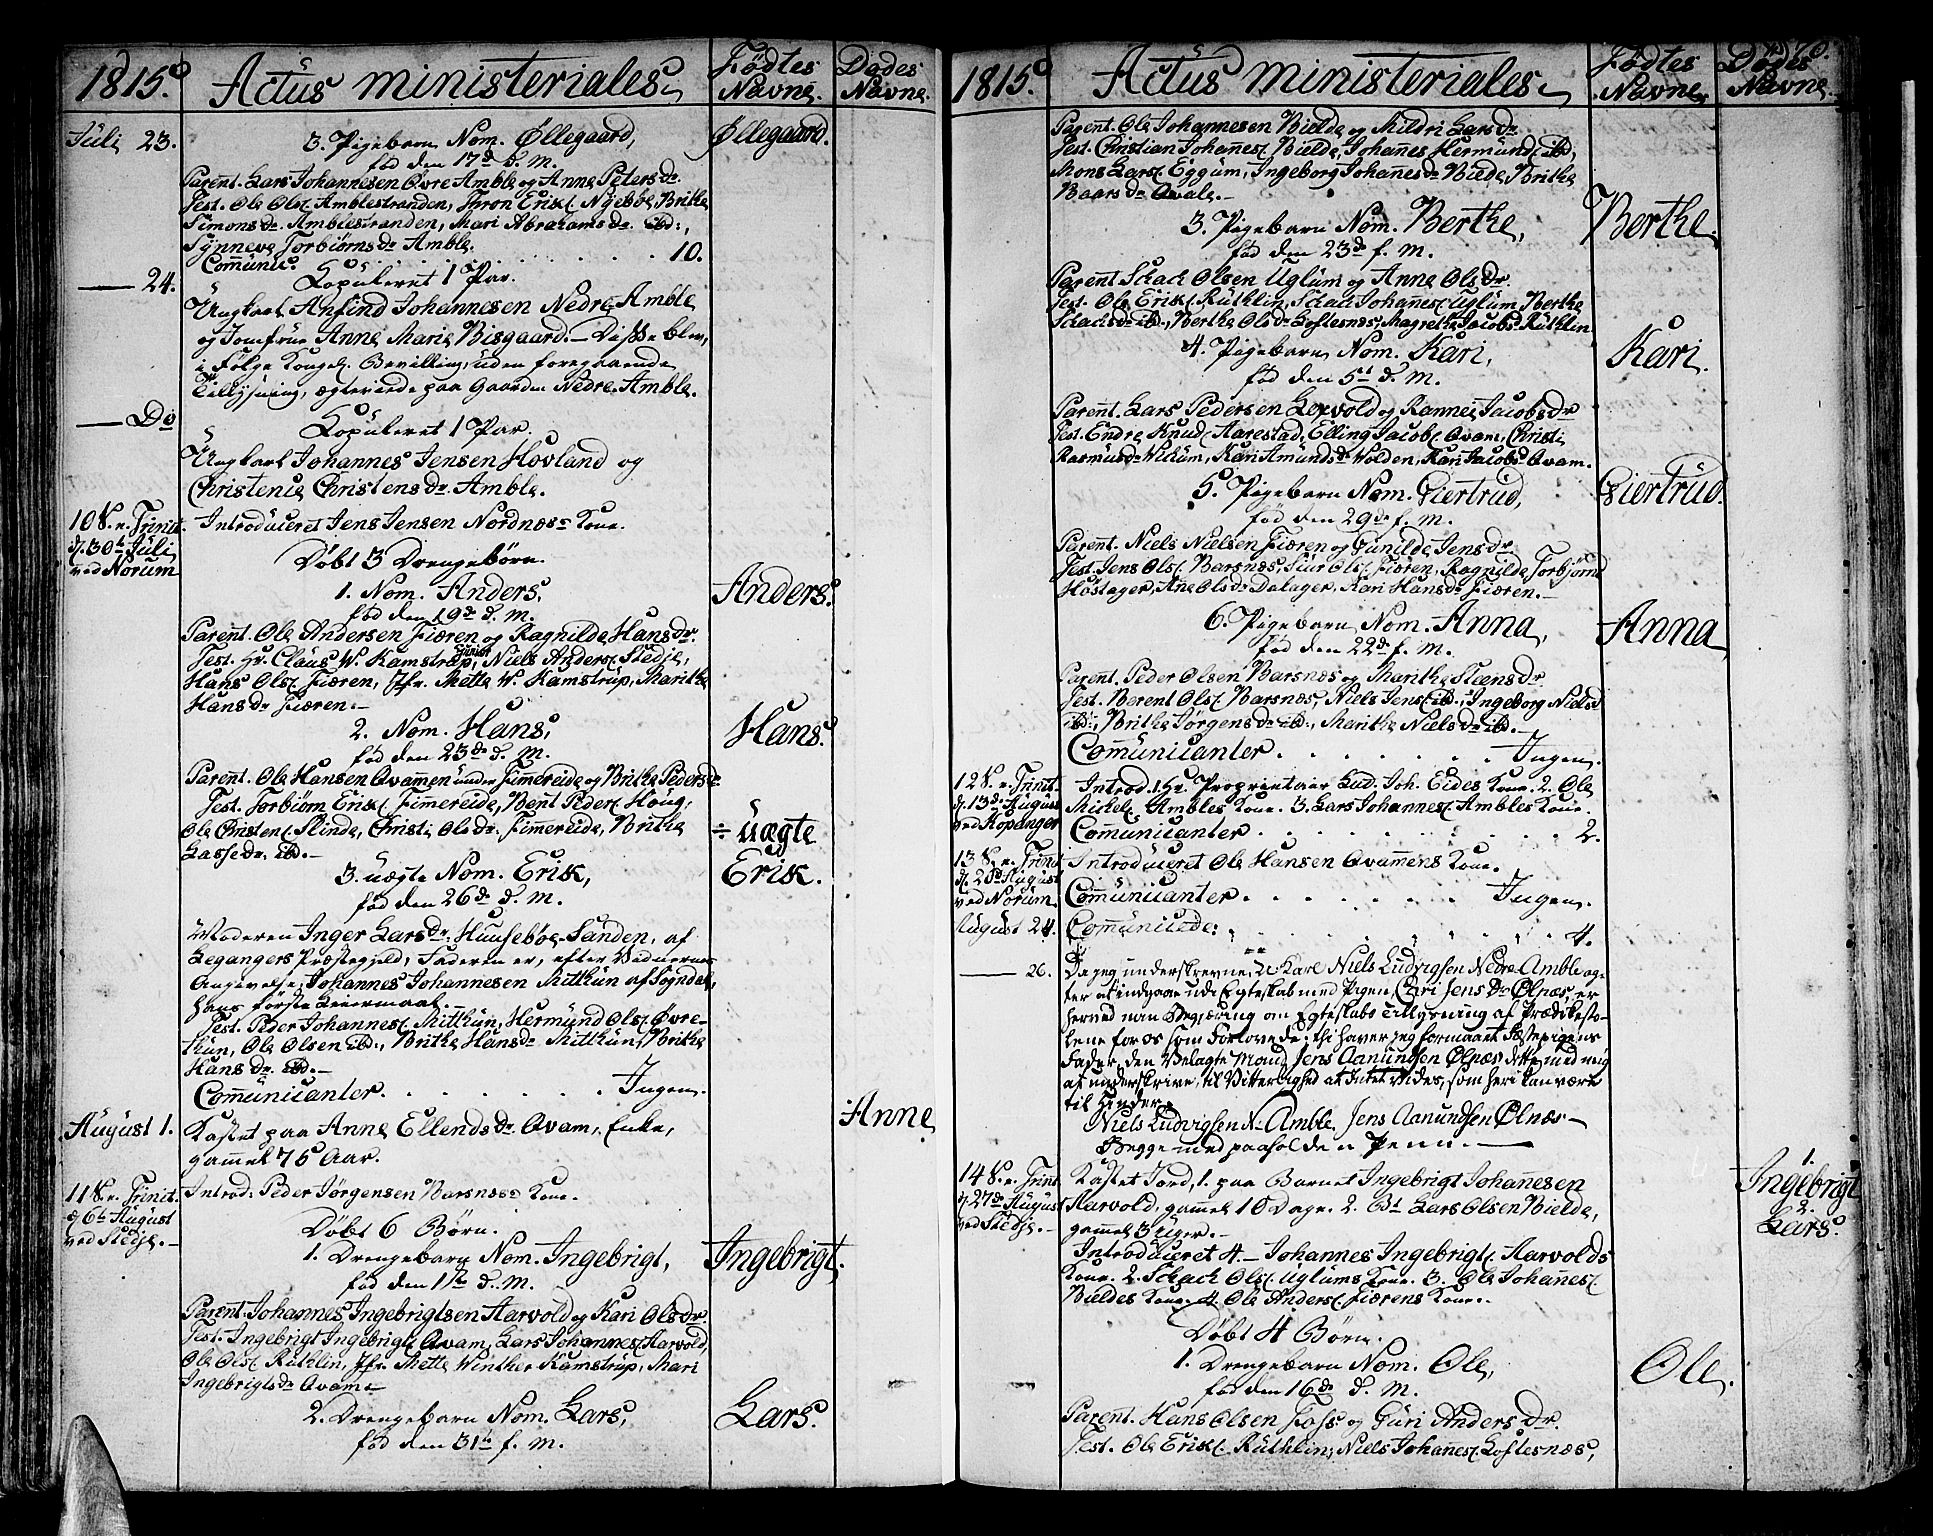 1815.
Actus ministeriales.
Fødtes Navne.
Dødes Navne.
Juli 23.
3. Pigebarn Nom. Øllegaard,
Øllegaard.
fød den 17de d. M.
Parent. Lars Johannesen Øvre Amble og Anne Peters Dr.
Test. Ole Ols. Amblestranden, Thron Eriks. Nyebøe, Brithe
Simons Dr. Amblestranden, Mari Abrahams Dr. ibd:,
Synneve Torbiørns Dr. Amble.
Com̅unic. . . . . . . . . . 10.
— 24.
Copuleret 1 Par.
Ungkarl Anfind Johannesen Nedre Amble
og Jomfrue Anne Marie Bisgaard. – Disse blev,
i Følge Kongel. Bevilling, uden foregaaende
Tillysning, ægteviede paa Gaarden Nedre Amble.
— Do
Copuleret 1 Par.
Ungkarl Johannes Jensen Hovland og
Christenie Christens Dr. Amble.
10 S. e. Trinit.
d. 30te Juli
ved Norum
Introduceret Jens Jensen Nordnæs Kone.
Døbt 3 Drengebørn.
1. Nom. Anders,
Anders.
fød den 19de d. M.
Parent. Ole Andersen Fiæren og Ragnilde Hans Dr.
Test. Hr. Claus W. Kamstrup Junior, Niels Anders. Stedje,
Hans Ols. Fiæren, Jfr. Mette W. Kamstrup, Marithe
Hans Dr. Fiæren. –
2. Nom. Hans,
Hans.
fød den 23de d. M.
Parent. Ole Hansen Qvamen under Fimmereide og Brithe Peders Dr
Test. Torbiørn Eriks. Fimmereide, Bent Peders. Houg,
Ole Christens. Slinde, Christi Ols Dr. Fimmereide, Brithe
Lasse Dr. ibd. –
3. uægte Nom. Erik,
÷ uægte
Erik.
fød den 26de d. M.
Moderen Inger Lars Dr. Huusebøe-Sanden, af
Leganger Præstegjeld, Faderen er, efter Vidnernes
Angivelse, Johannes Johannesen Mitthun af Sogndal,
hans første Leiermaal. –
Test. Peder Johannes. Mitthun, Hermund Ols. Øvre-
thun, Ole Olsen ibd:, Brithe Hans Dr. Mitthun, Brithe
Hans Dr. ibd. –
Com̅unicanter. . . . . . . Ingen.
August 1.
Kastet paa Anne Ellends Dr. Qvam, Enke,
Anne
gam̅el 75 Aar.
11 S. e. Trinit.
d. 6te August
ved Stedje. –
Introd: Peder Jørgensen Barsnæs Kone.
Døbt 6 Børn.
1. Drengebarn Nom. Ingebrigt,
Ingebrigt.
fød den 1ste d. M.
Parent. Johannes Ingebrigtsen Aarvold og Kari Ols Dr.
Test. Ingebrigt Ingebrigts. Qvam, Lars Johannes. Aarvold,
Ole Ols. Ruthlin, Jfr. Mette Winther Kamstrup, Mari
Ingebrigts Dr. Qvam. –
2. Drengebarn Nom. Lars,
Lars.
fød den 31te f. M.
1815.
Actus ministeriales.
Fødtes Navne
Dødes Navne.
Parent. Ole Johannesen Bielde og Mildri Lars Dr.
Test. Christian Johannes. Bielde, Johannes Hermunds. ibd,
Mons Lars. Eggum, Ingeborg Johanes Dr. Bielde, Brithe
Baars Dr. Qvale. –
3. Pigebarn Nom. Berthe,
Berthe.
fød den 23de f. M.
Parent. Schach Olsen Uglum og Anne Ols Dr.
Test. Ole Eriks. Ruthlin, Schach Johannes. Uglum, Berthe
Schachs Dr. ibd., Berthe Ols Dr. Loftesnæs, Magrethe Jacobs Dr. Ruthlin
4. Pigebarn Nom. Kari,
Kari.
fød den 5te d. M.
Parent. Lars Pedersen Lexvold og Rannei Jacobs Dr
Test. Endre Knuds. Aarestad, Elling Jacobs. Qvam, Christi
Rasmus Dr. Wikum, Kari Amunds Dr. Wolden, Kari Jacobs Dr. Qvam.
5. Pigebarn Nom. Giertrud,
Giertrud.
fød den 29de f. M.
Parent. Niels Nielsen Fiæren og Gunilde Jens Dr.
Test. Jens Ols. Barsnæs, Siur Ols. Fiæren, Ragnilde Torbiørns Dr
Høstager, Ane Ols Dr. Dalager, Kari Hans Dr. Fiæren. –
6. Pigebarn Nom. Anna,
Anna
fød den 22de f. M.
Parent. Peder Olsen Barsnæs og Marithe Steens Dr.
Test. Berent Ols. Barsnæs, Niels Jens. ibd., Ingeborg Niels Dr
ibd:, Brithe Jørgens Dr. ibd., Marithe Niels Dr. ibd. –
Com̅unicanter. . . . . . . Ingen.
12 S. e. Trinit.
d. 13de August
ved Kopanger
Introd. 1. Hr. Proprientair Lud. Joh. Eides Kone. 2. Ole
Mikels. Ambles Kone. 3. Lars Johannes. Ambles Kone.
Com̅unicanter . . . . . . . 2.
13 S. e. Trinit
d. 20de August
ved Norum
Introduceret Ole Hansen Qvam̅ens Kone.
Com̅unicanter. . . . . . . Ingen.
August 24.
Com̅unicede: . . . . . . . 4.
— 26.
Da jeg underskrevne, U. Karl Niels Ludvigsen Nedre Amble ag-
ter at indgaae udi Egteskab med Pigen, Cari Jens Dr. Ølnæs, er
herved min Begjæring om Egteskabs Tillysning af Prædikesto-
lene for os som Forlovede; thi haver jeg formaaet Fæstepigens
Fader, den Velagte Mand Jens Aamundsen Ølnæs dette med mig
at underskrive, til Vitterlighed at Intet vides, som heri kan være
til Hinder.
Niels Ludvigsen N. Amble Jens Aanundsen Ølnæs –
Begge med paaholden Penn. —
14 S. e. Trinit.
d. 27de August
ved Stedje. –
Kastet Jord, 1. paa Barnet Ingebrigt Johanesen
Aarvold, gam̅el 10 Dage. 2. Bt Lars Olsen Bielde,
gam̅el 3 Uger. –
1.
Ingebrigt
2.
Lars.
Introduceret 4 – Johannes Ingebrigts. Aarvolds
Kone. 2. Schach Ols. Uglums Kone. 3. Ole Johannes.
Bieldes Kone. 4. Ole Anders. Fiærens Kone. –
Døbt 4 Børn.
1. Drengebarn Nom. Ole,
Ole.
fød den 16de d. M.
Parent. Hans Olsen Foss og Guri Anders Dr.
Test. Ole Eriks. Ruthlin, Niels Johannes. Loftesnæs,